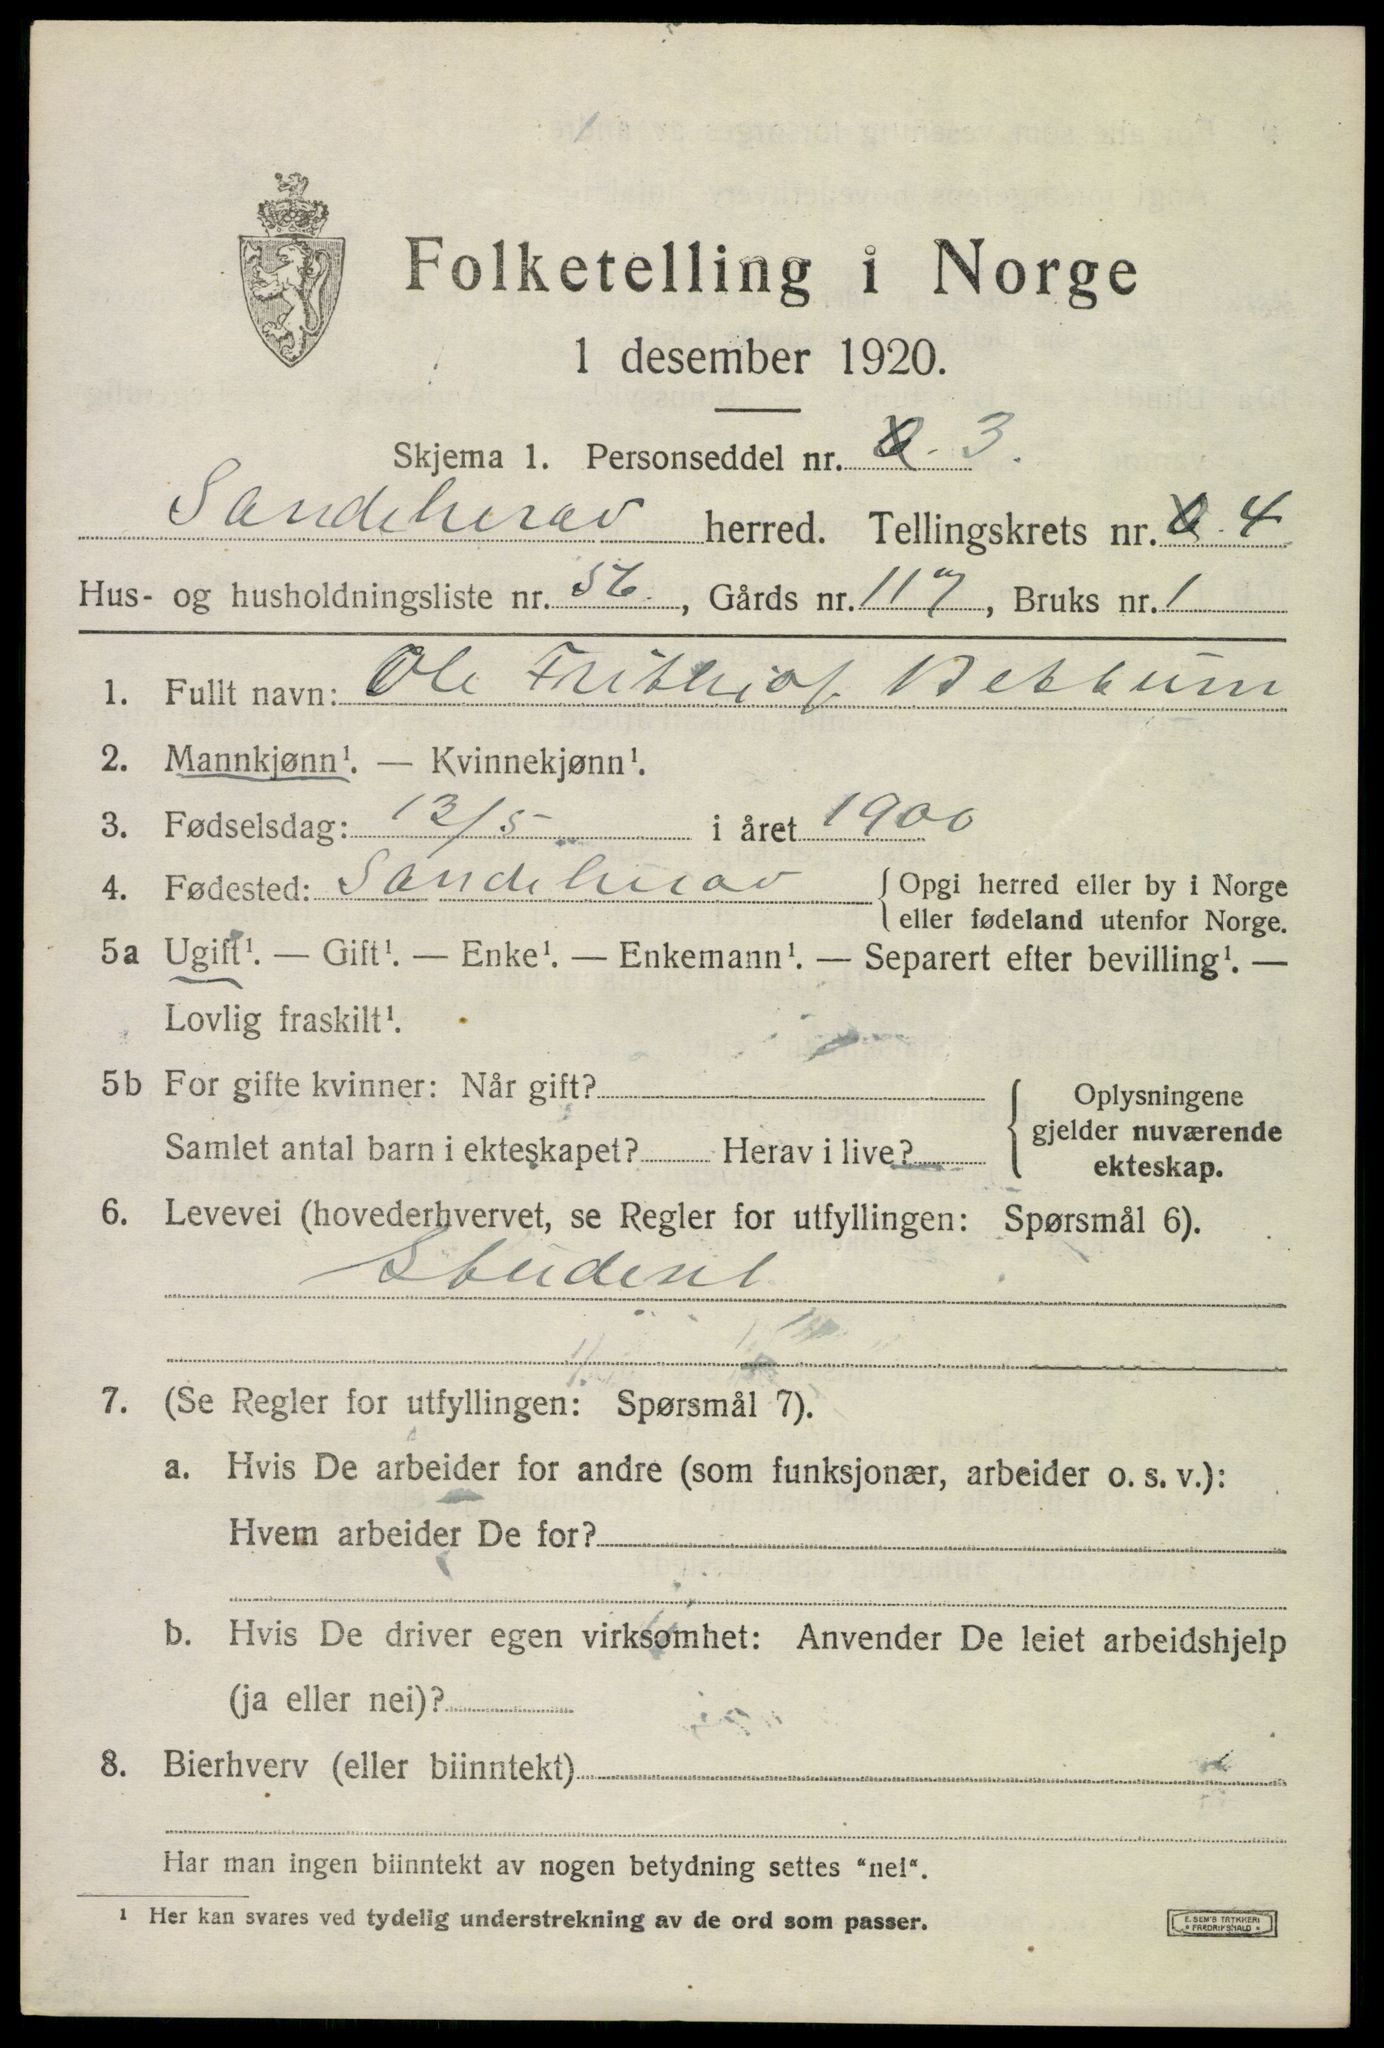 Folketelling i Norge
1 desember 1920.
Skjema 1. Personseddel nr. 3.
Sandeherav herred. Tellingskrets nr. 4
Hus- og husholdningsliste nr. 56., Gårds nr. 117, Bruks nr. 1
1. Fullt navn: Ole Frithjof Bekkum
2. Mannkjønn¹. — Kvinnekjønn¹.
3. Fødselsdag: 13/5 i året 1900
4. Fødested: Sandeherav { Opgi herred eller by i Norge
eller fødeland utenfor Norge.
5a Ugift¹. — Gift¹. — Enke¹. — Enkemann¹. — Separert efter bevilling¹. —
Lovlig fraskilt¹.
5b For gifte kvinner: Når gift?
Samlet antal barn i ekteskapet? Herav i live?
{ Oplysningene
gjelder nuværende
ekteskap.
6. Levevei (hovederhvervet, se Regler for utfyllingen: Spørsmål 6).
Student
7. (Se Regler for utfyllingen: Spørsmål 7).
a. Hvis De arbeider for andre (som funksjonær, arbeider o. s. v.):
Hvem arbeider De for?
b. Hvis De driver egen virksomhet: Anvender De leiet arbeidshjelp
(ja eller nei)?
8. Bierhverv (eller biinntekt)
Har man ingen biinntekt av nogen betydning settes "nei".
¹ Her kan svares ved tydelig understrekning av de ord som passer.
E. SEM'S TRYKKERI
* FREDRIKSHALD *